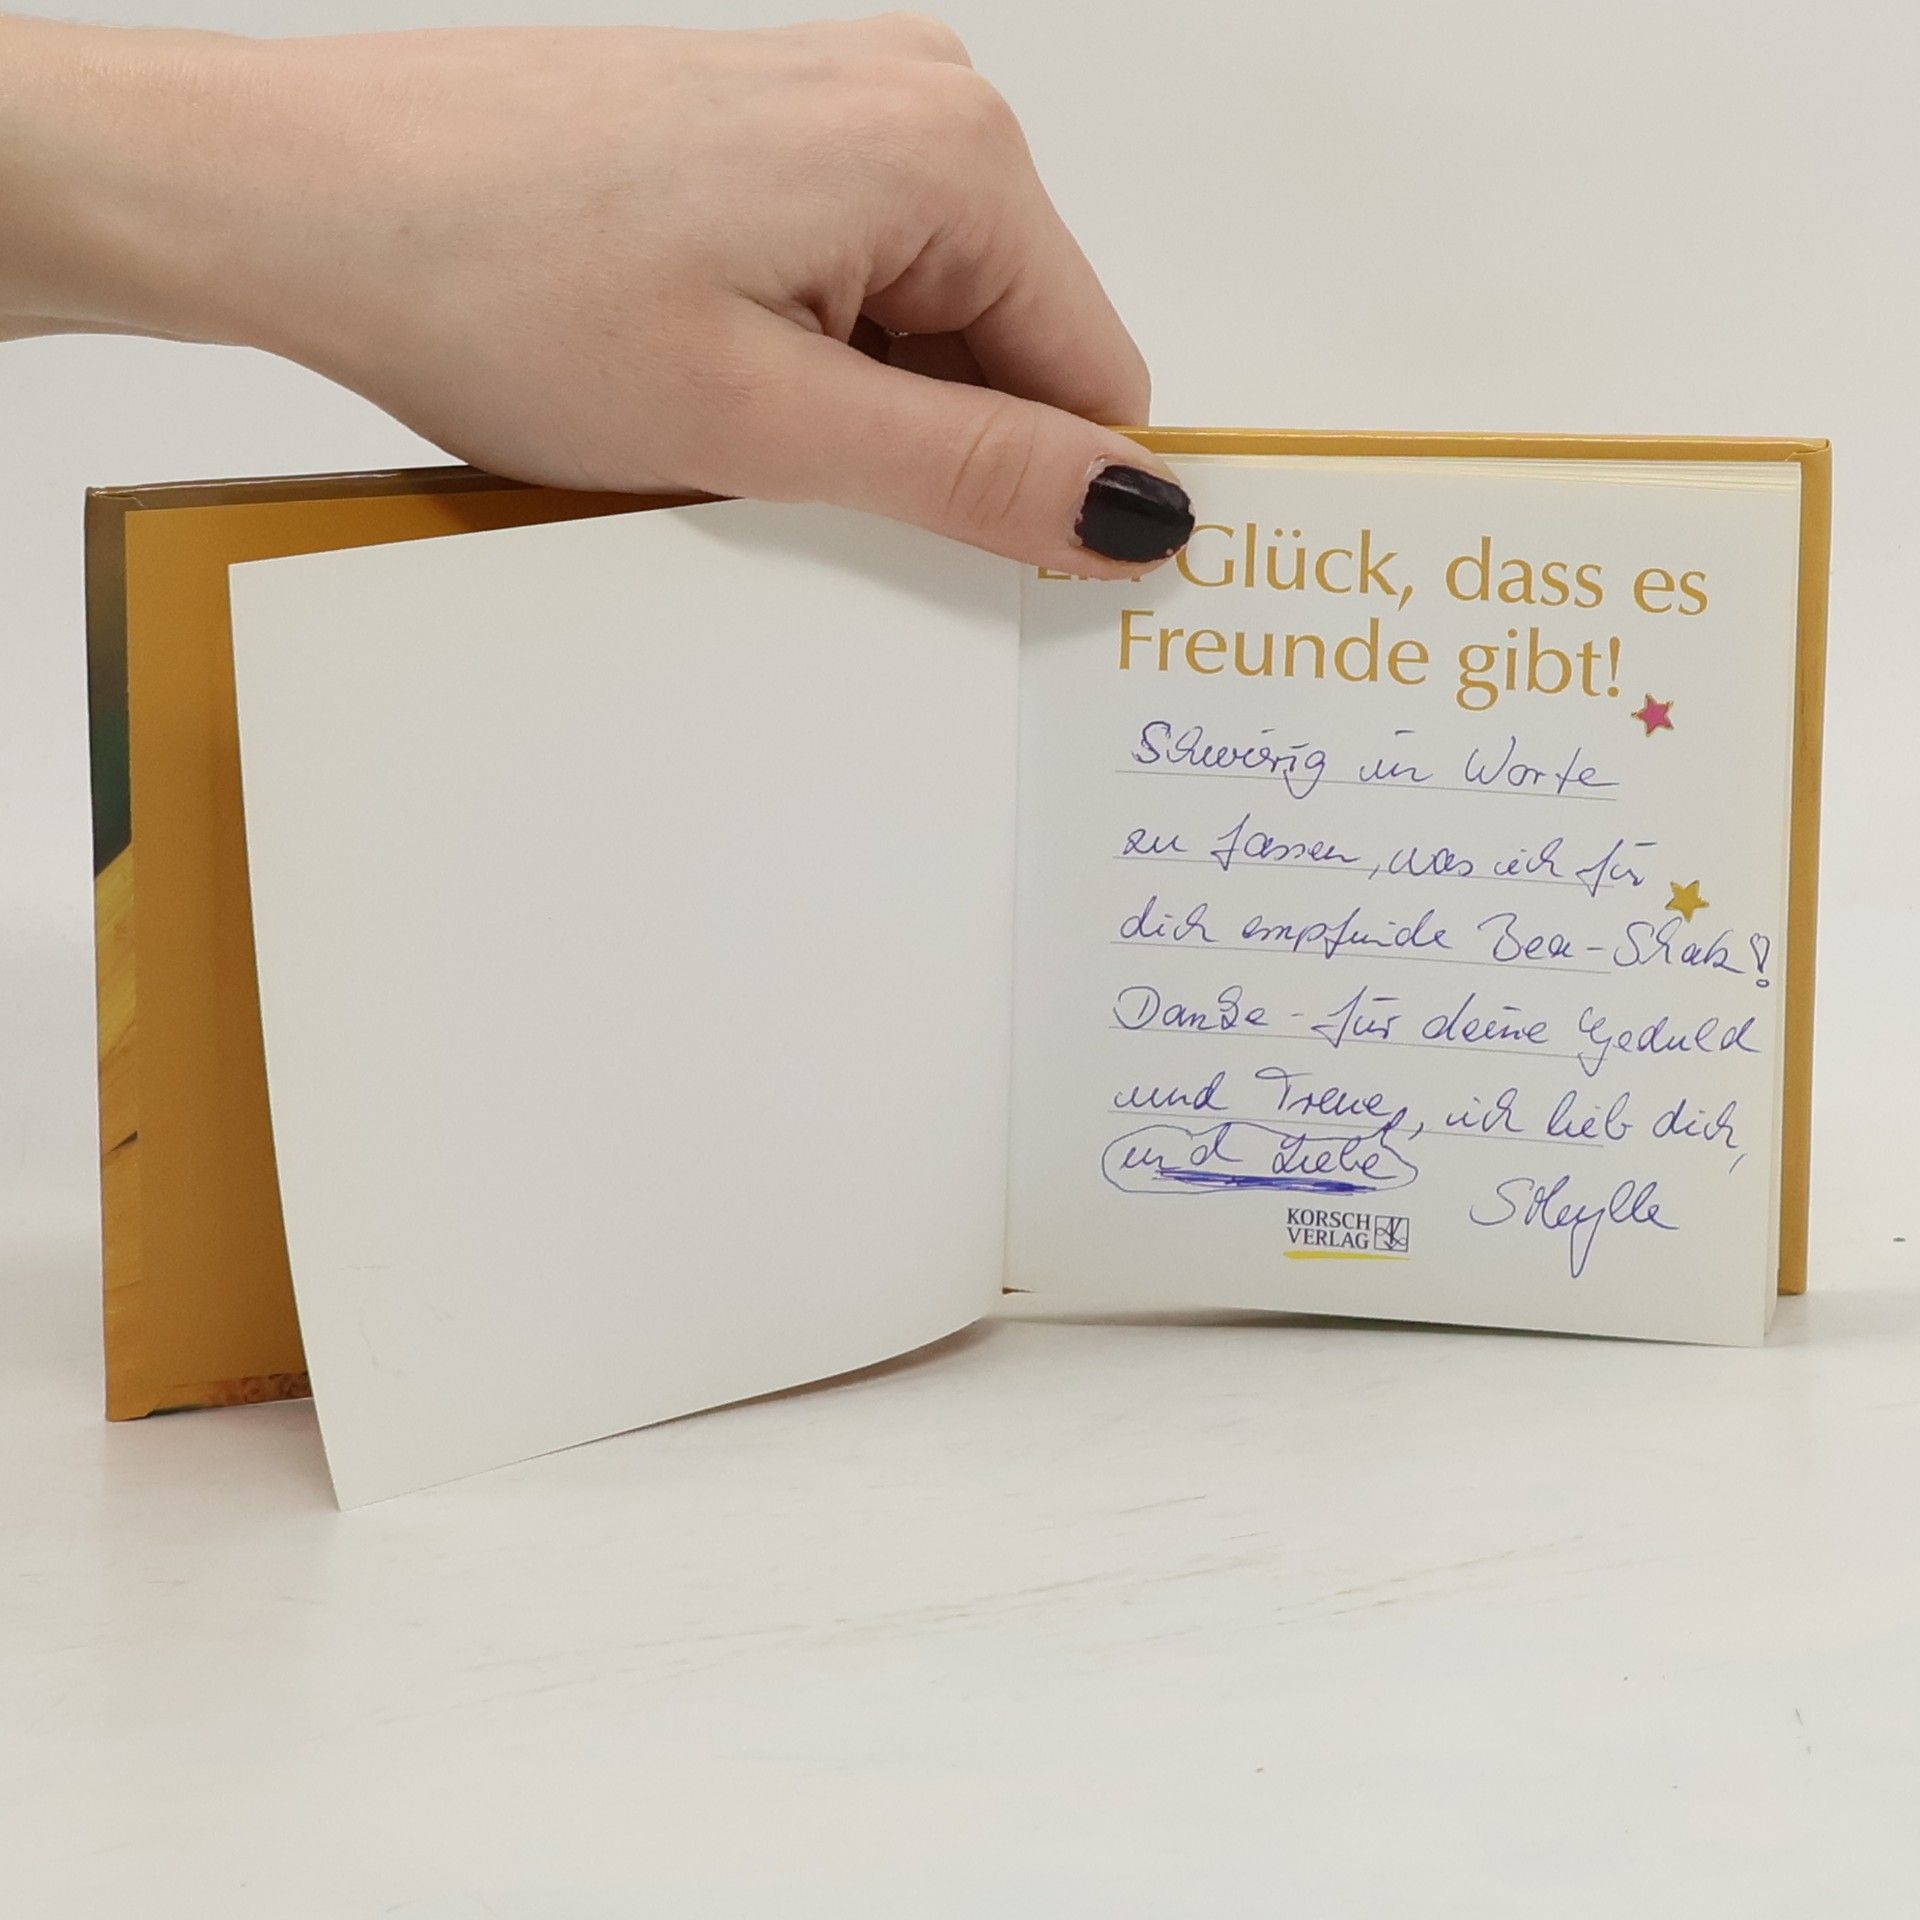 Ein Glück, dass es
Freunde gibt!
Schwierig in Worte
zu fassen, was ich für
dich empfinde Bea-Schatz!
Danke - für deine Geduld
und Treue, ich lieb dich,
und Liebe
KORSCH
VERLAG